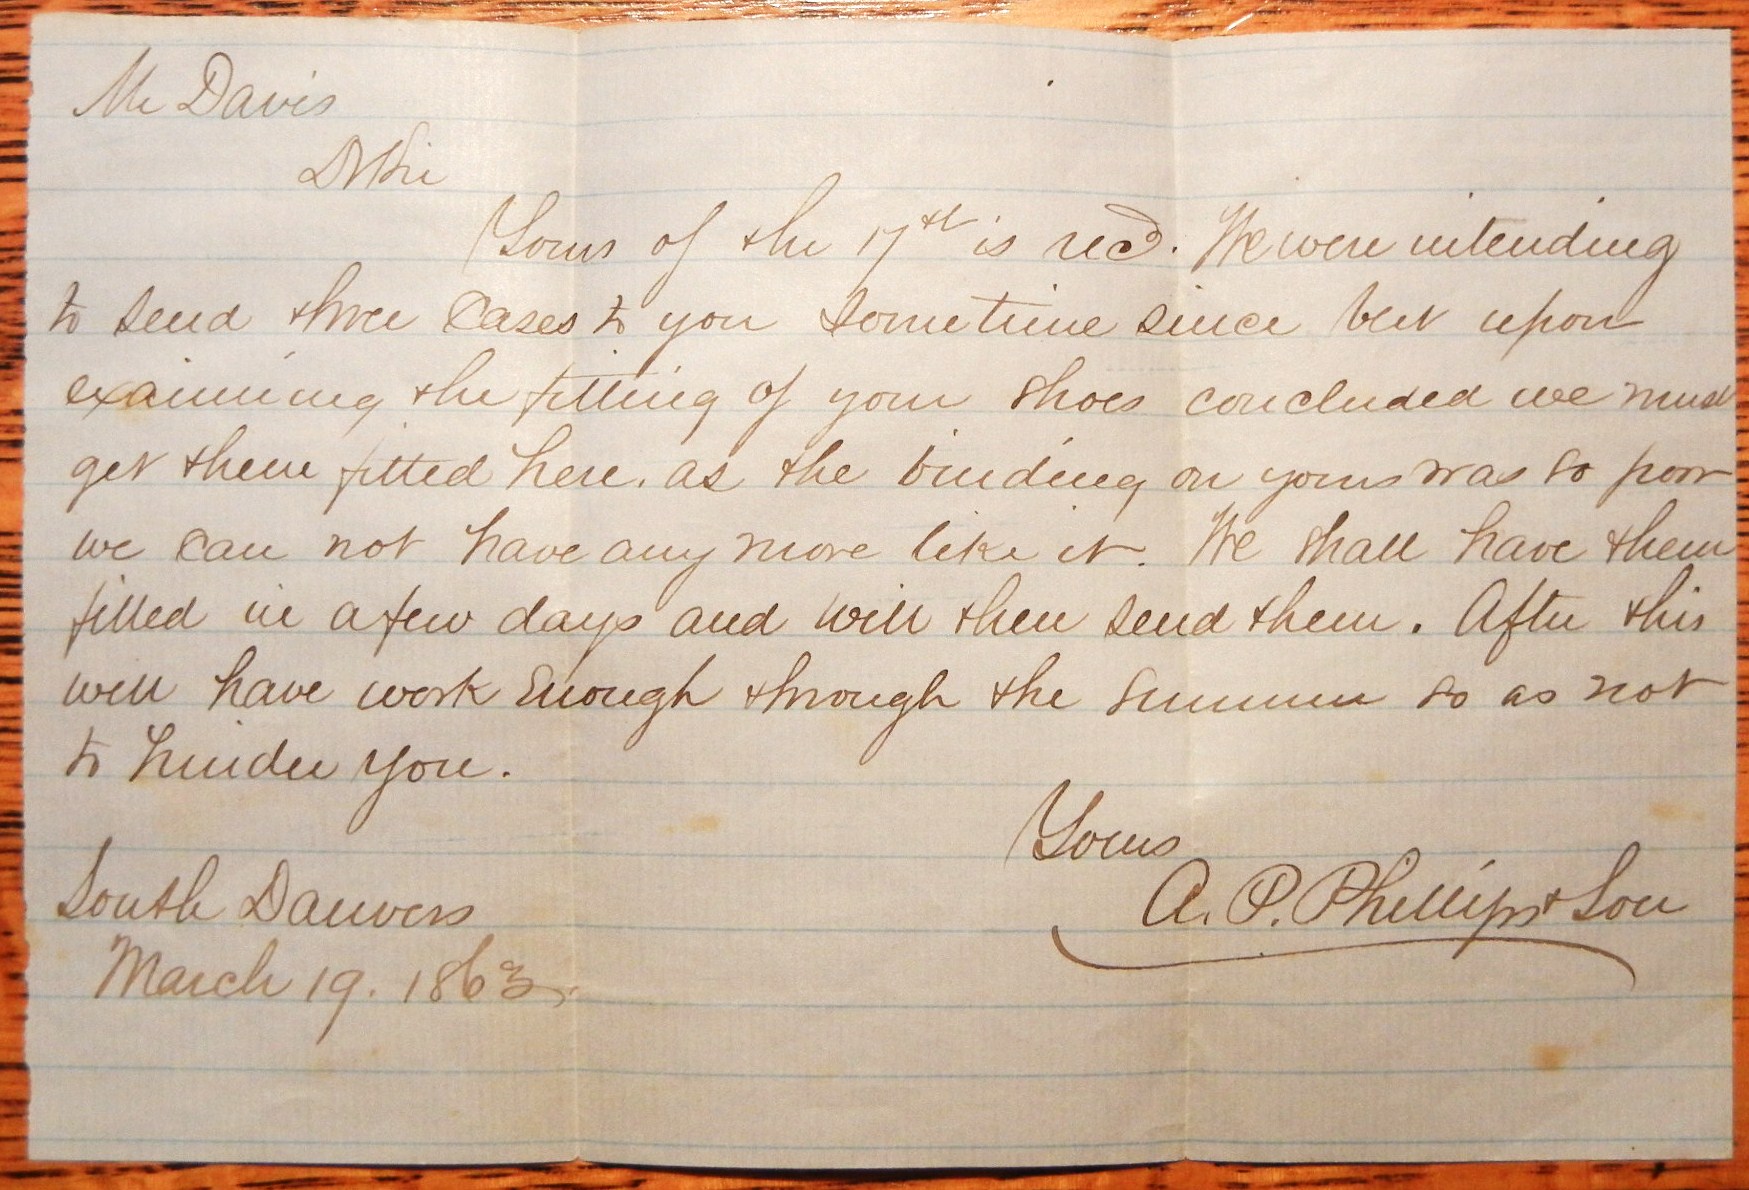 Mr Davis
D Sir
Yours of the 17th is recd. We were intending
to send three cases to you sometime since but upon
examining the fitting of your shoes concluded we must
get them fitted here. as the binding on yours was so poor
we can not have any more like it. We shall have them
fitted in a few days and will then send them. After this
will have work enough through the summer so as not
to hinder you.
Yours
A. P. Phillips & Son
South Danvers
March 19. 1863.